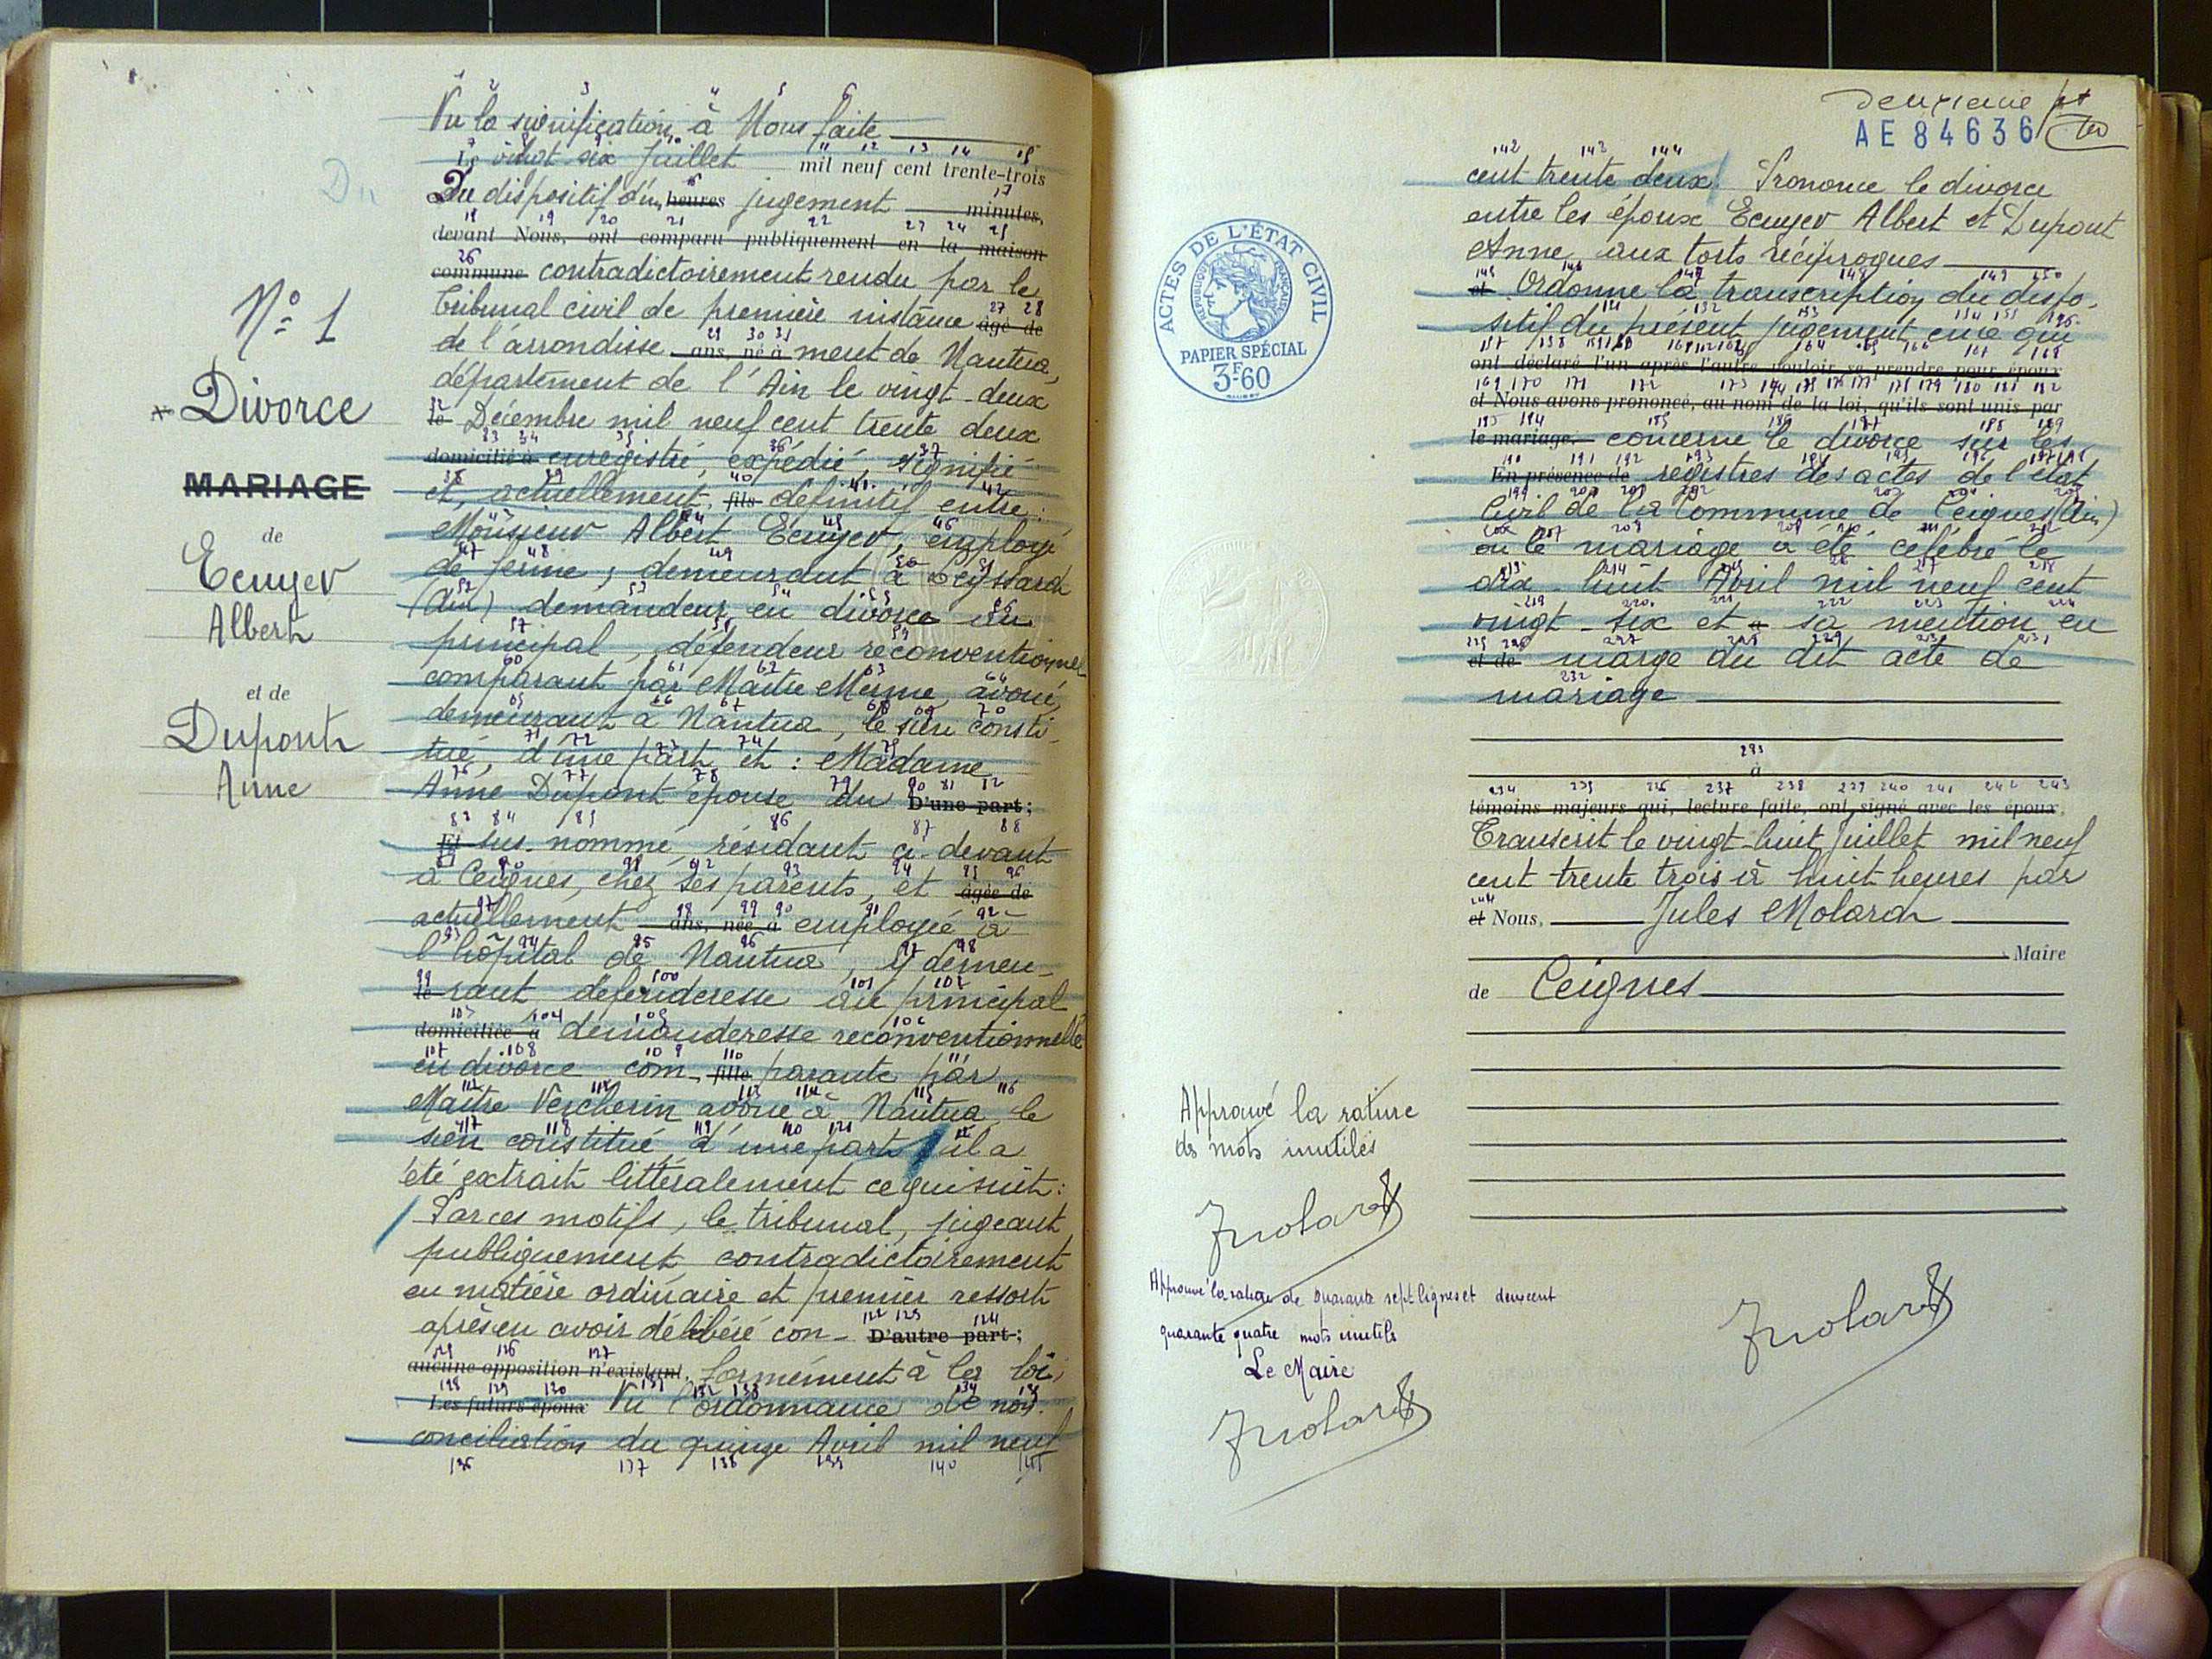 Vu la signification à Nous faite
Le vingt six Juillet mil neuf cent trente-trois
Du dispositif d'un heures jugement minutes,
devant Nous, ont comparu publiquement en la maison
commune contradictoirement rendu par le
Tribunal civil de première instance âgé de
de l'arrondisse ans, né à ment de Nantua,
département de l'Ain le vingt-deux
le Décembre mil neuf cent trente deux
domicilié à enregistré, expédié, signifié
et, actuellement, fils définitif entre :
Monsieur Albert Ecuyer, employé
de ferme, demeurant à Leyssard
(Ain) demandeur en divorce au
principal, défendeur reconventionnel
comparant par Maître Merme, avoué,
demeurant à Nantua, le sien consti-
tué, d'une part, et : Madame
Anne Dupont épouse du D'une part;
Et sus-nommé, résidant ci-devant
à Ceignes, chez ses parents, et âgée de
actuellement ans, née à employée à
l'hôpital de Nantua, y demeu-
le rant, défenderesse au principal
domiciliée à demanderesse reconventionnelle
en divorce com- fille parante par
Maître Vercherin avoué à Nantua, le
sien constitué d'une part, il a
été extrait littéralement ce qui suit :
Par ces motifs, le tribunal, jugeant
publiquement, contradictoirement
en matière ordinaire et premier ressort
après en avoir délibéré con- D'autre part;
aucune opposition n'existant. formément à la loi,
Les futurs époux Vu l'ordonnance de non-
conciliation du quinze Avril mil neuf
N° 1
Divorce
MARIAGE
de
Ecuyer
Albert
et de
Dupont
Anne
Du
deuxième
AE 84636
cent trente deux. Prononce le divorce
entre les époux Ecuyer Albert et Dupont
Anne, aux torts réciproques
et Ordonne la transcription du dispo-
sitif du présent jugement en ce qui
ont déclaré l'un après l'autre vouloir se prendre pour époux
et Nous avons prononcé, au nom de la loi, qu'ils sont unis par
le mariage. concerne le divorce sur les
En présence de registres des actes de l'état
Civil de la Commune de Ceignes (Ain)
où le mariage a été célébré le
dix huit Avril mil neuf cent
vingt-six et a sa mention en
et de marge du dit acte de
mariage
à
témoins majeurs qui, lecture faite, ont signé avec les époux,
Transcrit le vingt-huit Juillet mil neuf
cent trente trois à huit heures par
et Nous, Jules Molard
Maire
de Ceignes
ACTES DE L'ÉTAT CIVIL
RÉPUBLIQUE FRANÇAISE
PAPIER SPÉCIAL
3F60
Approuvé la rature
de mots inutiles
JMolard
Approuvé la rature de quarante sept lignes et deux cent
quarante quatre mots inutils
Le Maire
JMolard
JMolard